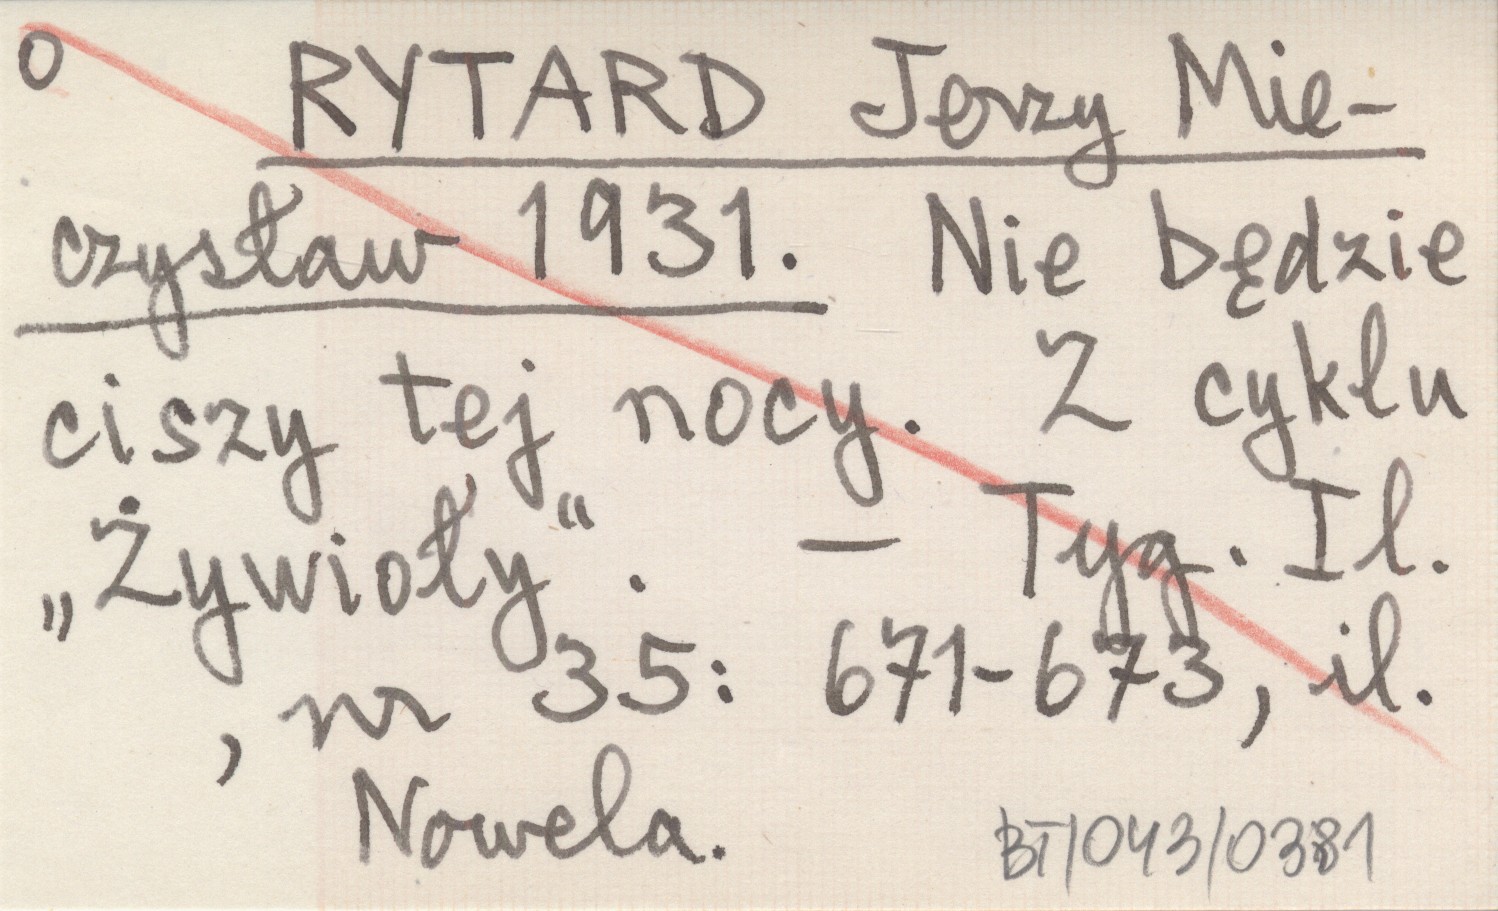 O RYTARD Jerzy Mie-
czysław 1931. Nie będzie
ciszy tej nocy. Z cyklu
„Żywioły“. — Tyg. Il.
, nr 35: 671-673, il.
Nowela.
BT/043/0381